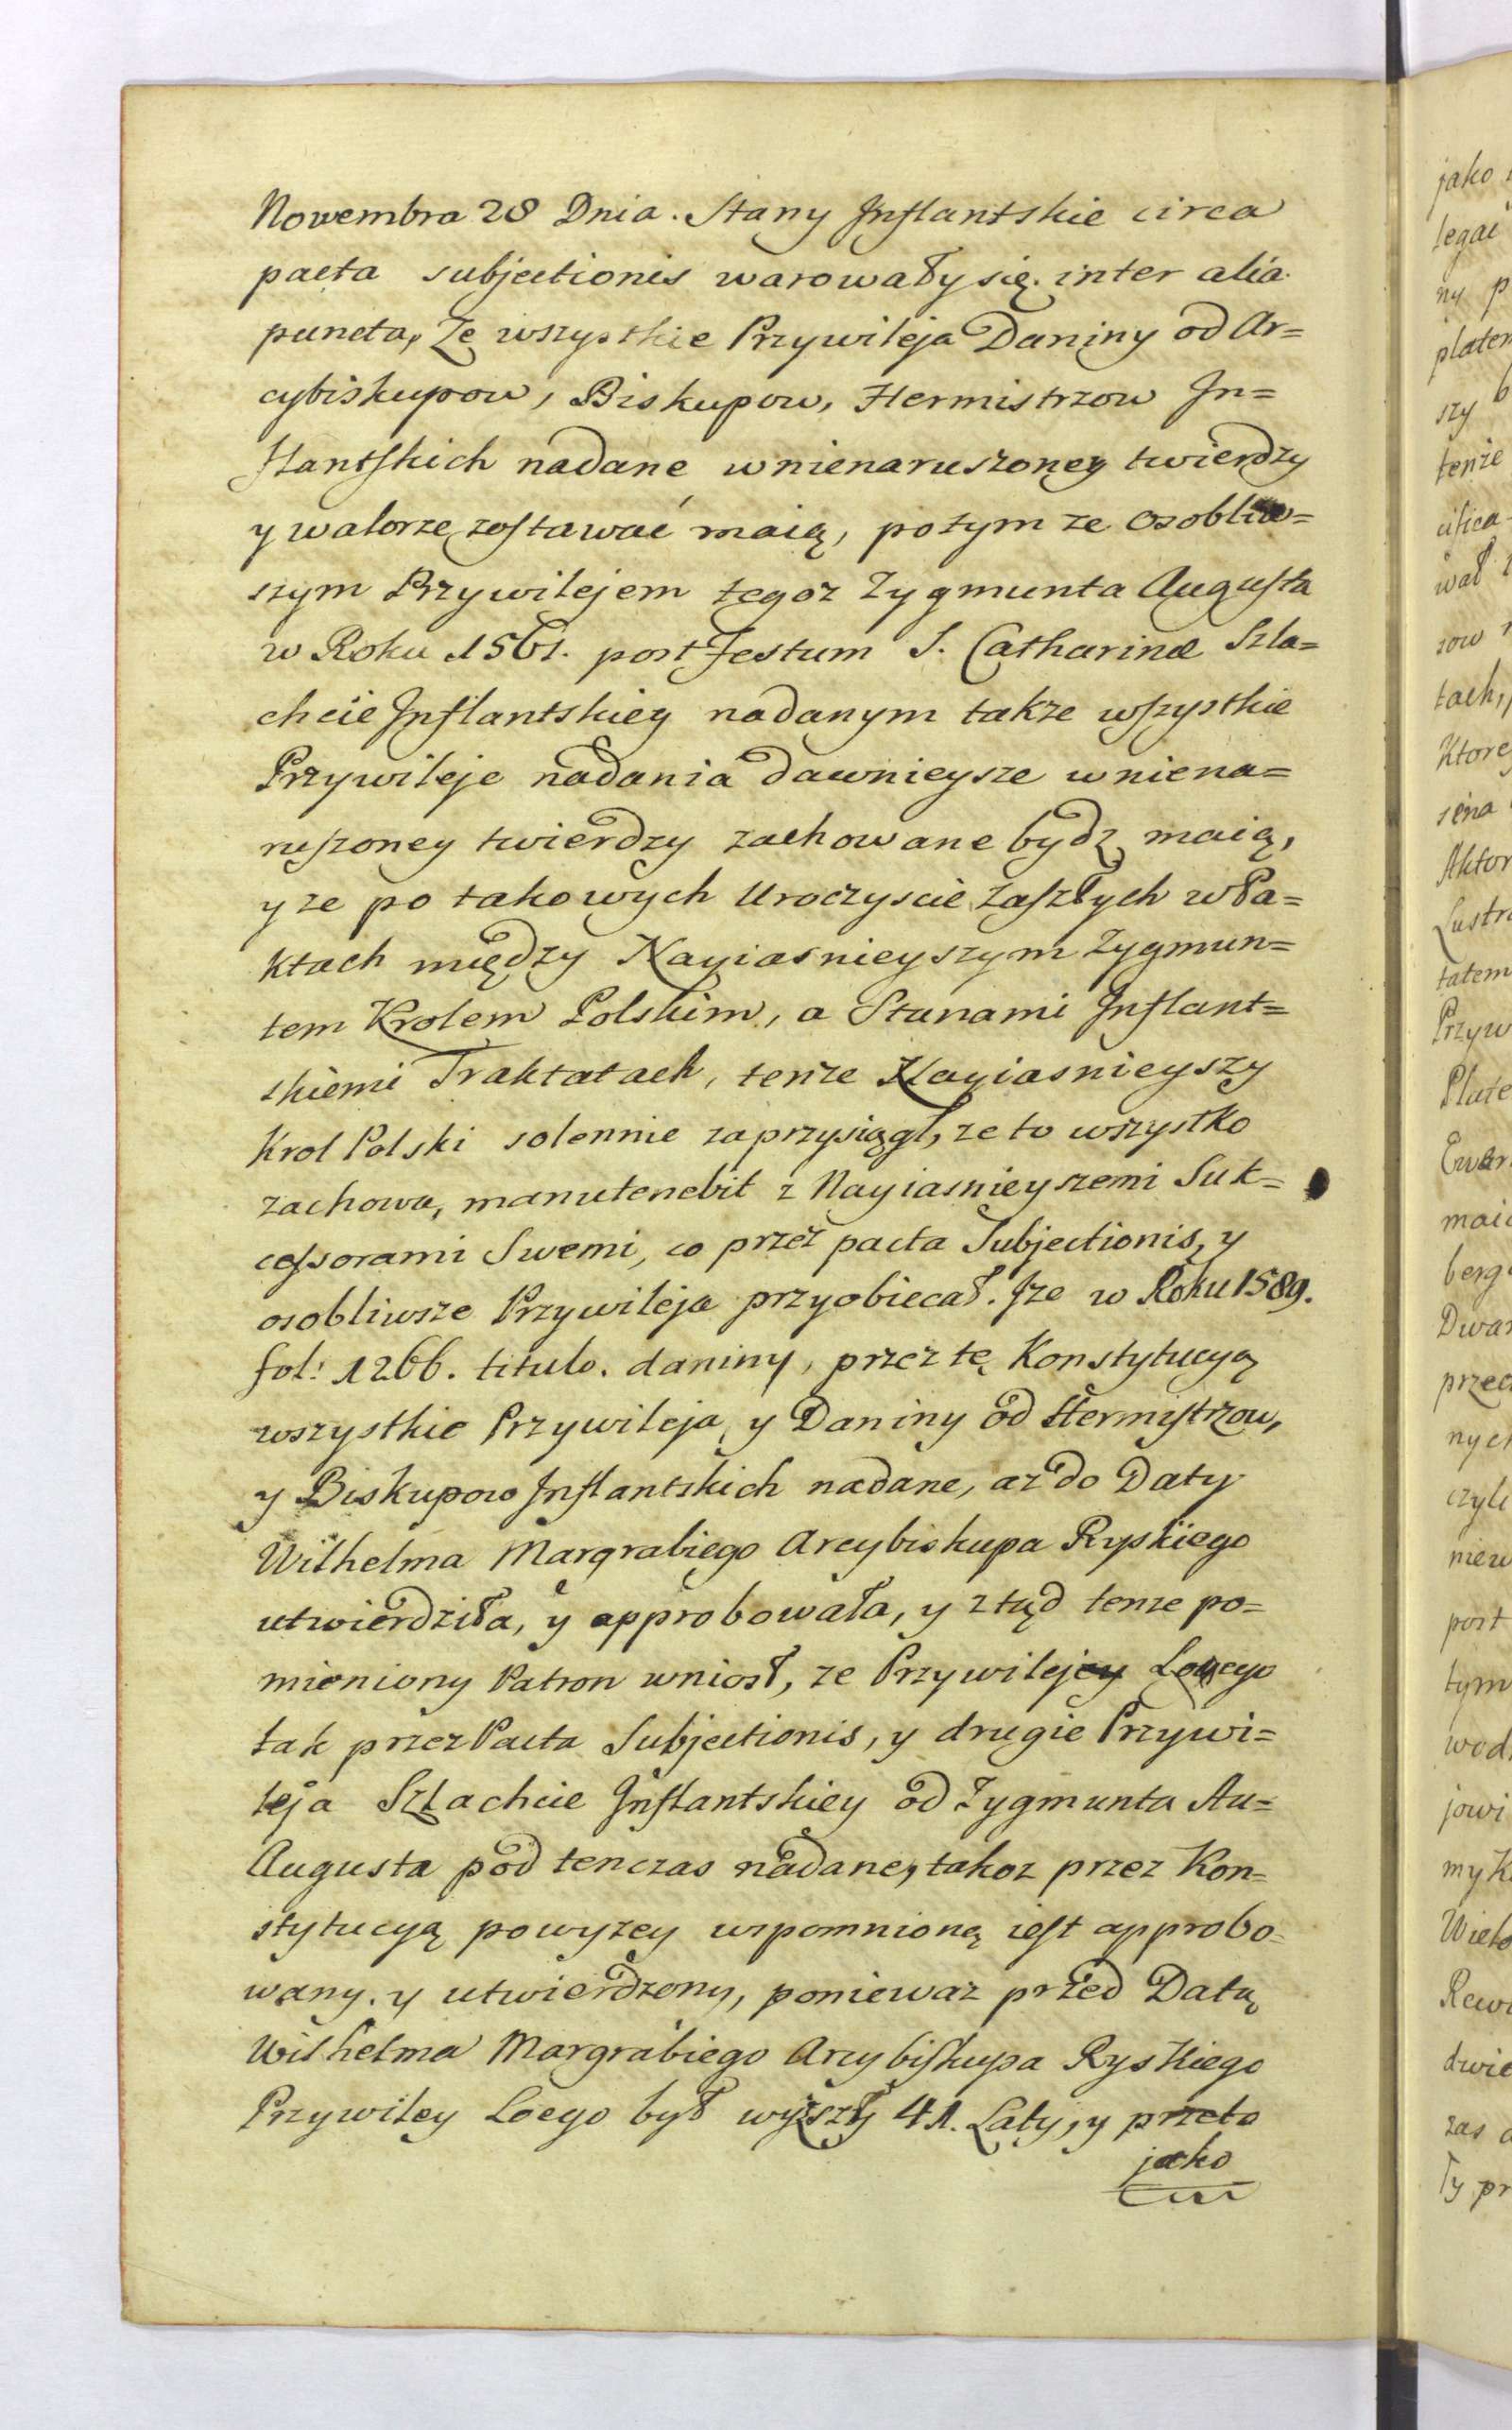 Nowembra 28 Dnia. Stany Inflantskie circa
pacta subjectionis warowały się. inter alia
puncta, Ze wszystkie Przywileja Daniny od Ar=
cybiskupow, Biskupow, Hermistrzow In=
flantskich nadane wnienaruszoney twierdzy
y walorze zostawać maią, potym ze osobliw=
szym Przywilejem tegoz Zygmunta Augusta
w Roku 1561. post Festum S. Catharinæ Szla=
chcie Inflantskiey nadanym takze wszystkie
Przywileje nadania dawnieysze wniena=
ruszoney twierdzy zachowane bydz maią,
y ze po takowych Uroczyscie zaszłych w Pa=
ktach między Nayiasnieyszym Zygmun=
tem Krolem Polskim, a Stanami Inflant=
skiemi Traktatach, tenze Nayiasnieyszy
Krol Polski solennie zaprzysiągł, ze to wszystko
zachowa, manutenebit z Nayiasnieyszemi Suk=
cessorami Swemi, co przez pacta Subjectionis, y
osobliwsze Przywileja przyobiecał. Ize w Roku 1589.
fol: 1266. titulo. daniny, przez tę Konstytucyą
wszystkie Przywileja, y Daniny od Hermistrzow,
y Biskupow Inflantskich nadane, az do Daty
Wilhelma Margrabiego Arcybiskupa Ryskiego
utwierdziła, y approbowała, y ztąd tenze po=
mieniony Patron wniosł, ze Przywilejey
tak przez Pacta Subjectionis, y drugie Przywi=
leja Szlachcie Inflantskiey od Zygmunta Au=
Augusta pod tenczas nadane, takoz przez Kon=
stytucyą powyzey wspomnioną iest approbo=
wany. y utwierdzony, poniewaz przed Datą
Wilhelma Margrabiego Arcybiskupa Ryskiego
Przywiley Loego był wyszły 41. Laty, y przeto
jako